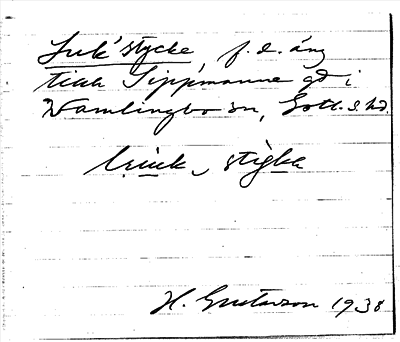 Suk´stycke, f.d. äng
tillh Sippmanne gd i
Vamlingbo sn, Gotl. s. hd.
stiḱka
H. Gustavson 1938